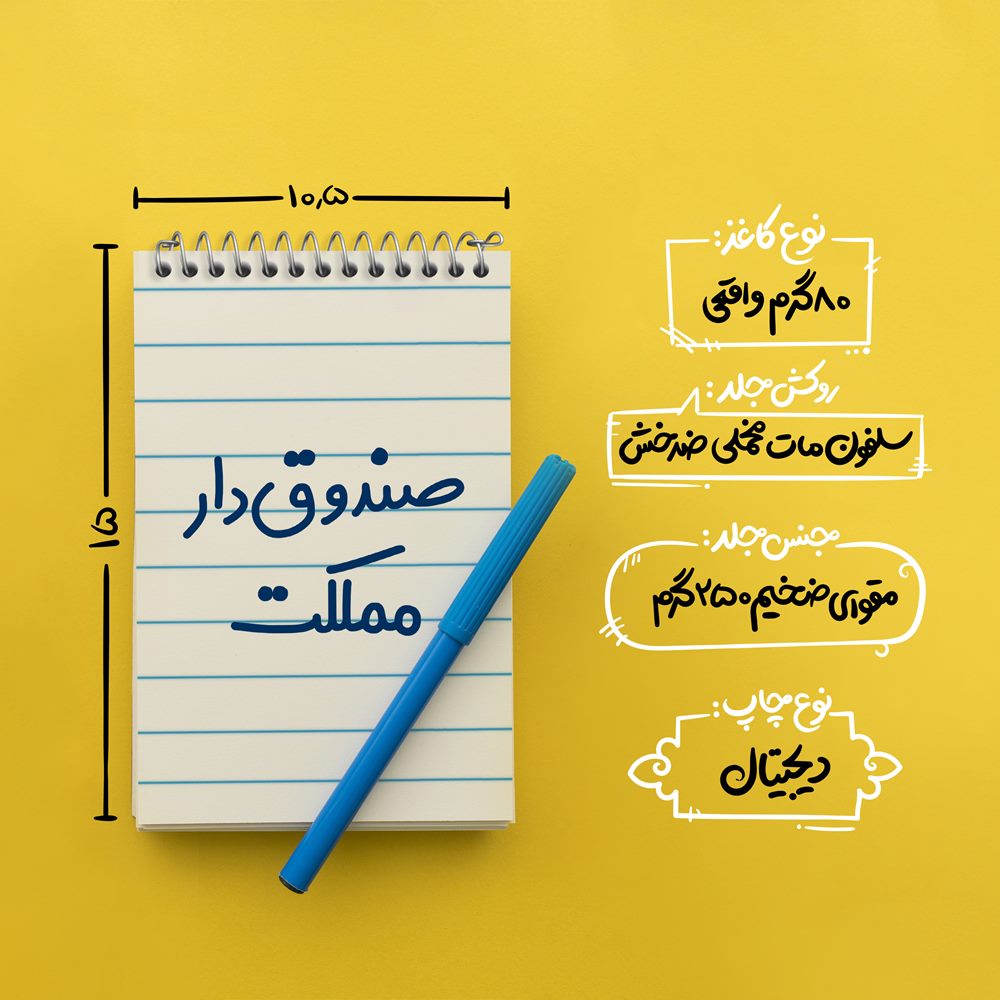 ۱۰٫۵
۱۵
صندوق‌دار
مملکت
نوع کاغذ:
۸۰ گرم واقعی
روکش جلد:
سلفون مات مخملی ضدخش
جنس جلد:
مقوای ضخیم ۲۵۰ گرم
نوع چاپ:
دیجیتال